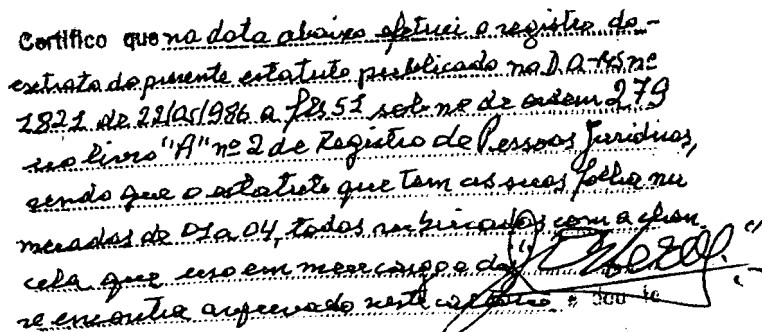 Certifico que na data abaixo efetuei o registro do
extrato do presente estatuto publicado no D.O-MS nº
1821 de 22/05/1986 a fls 51 sob nº de ordem 279
no livro "A" nº 2 de Registro de Pessoas Juridicas,
sendo que o estatuto que tem as suas folha nu
meradas de 01 a 04, todas rubricadas com a chan
cela que uso em meu cargo e da
se encontra arquivado neste cartorio e dou fe